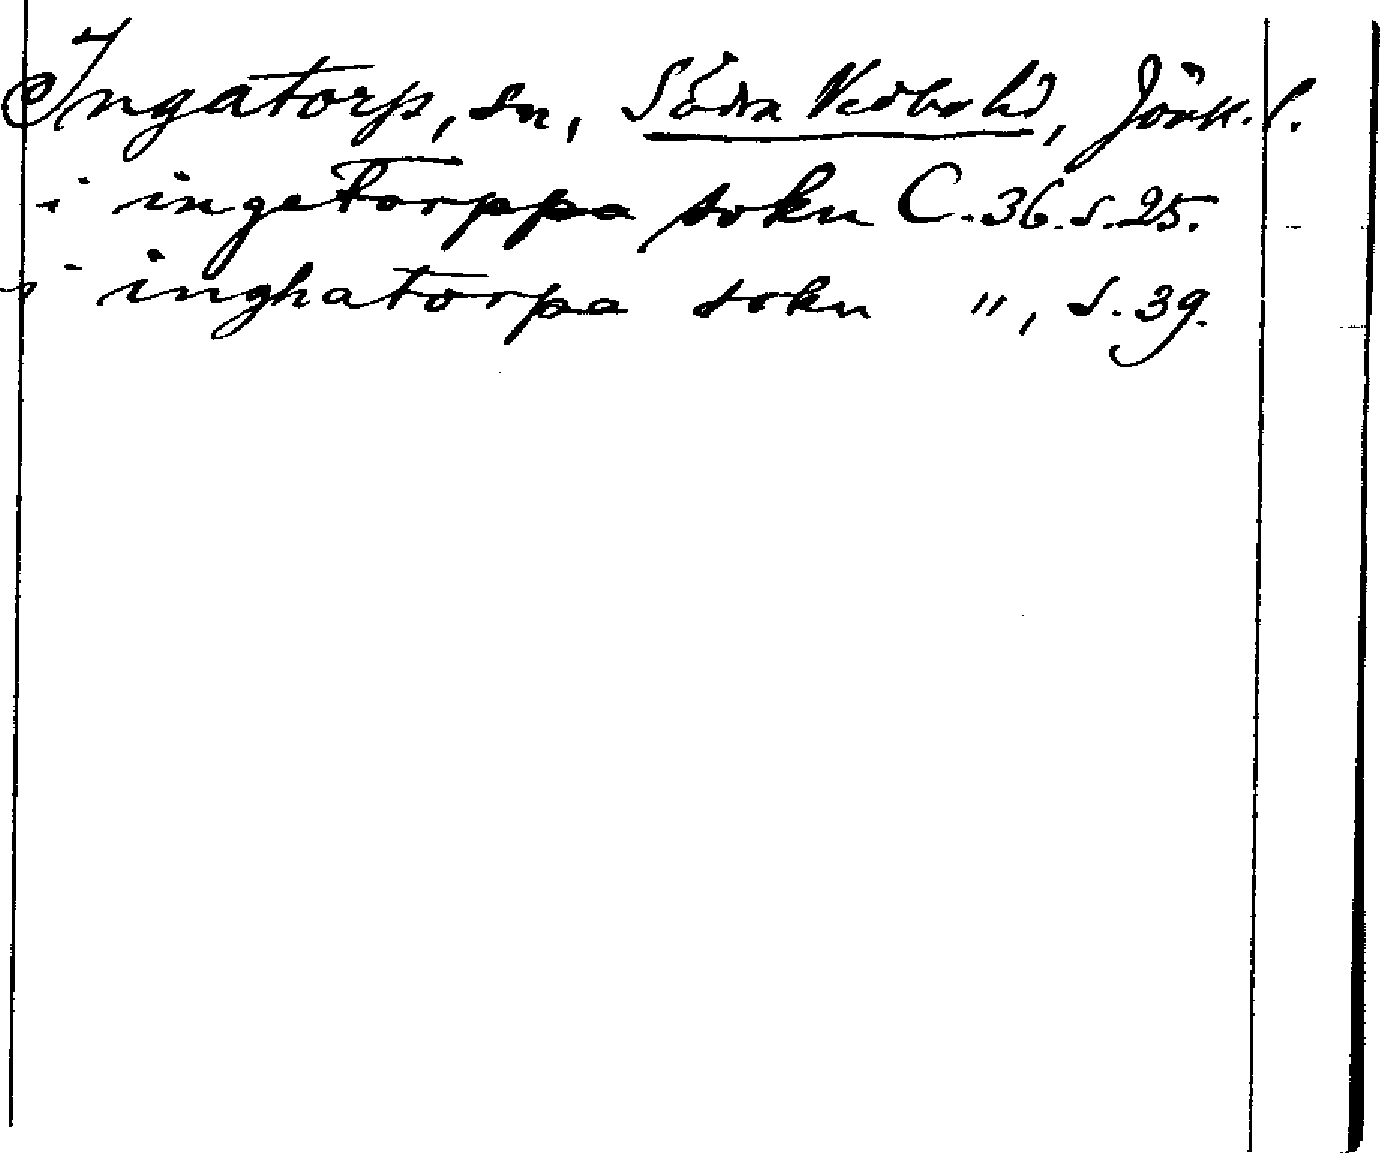 Ingatorp, sn, Södra Vedbo hd, Jönk. l.
i ingetorppa sokn C. 36. s. 25.
i inghatorpa sokn ", s. 39.